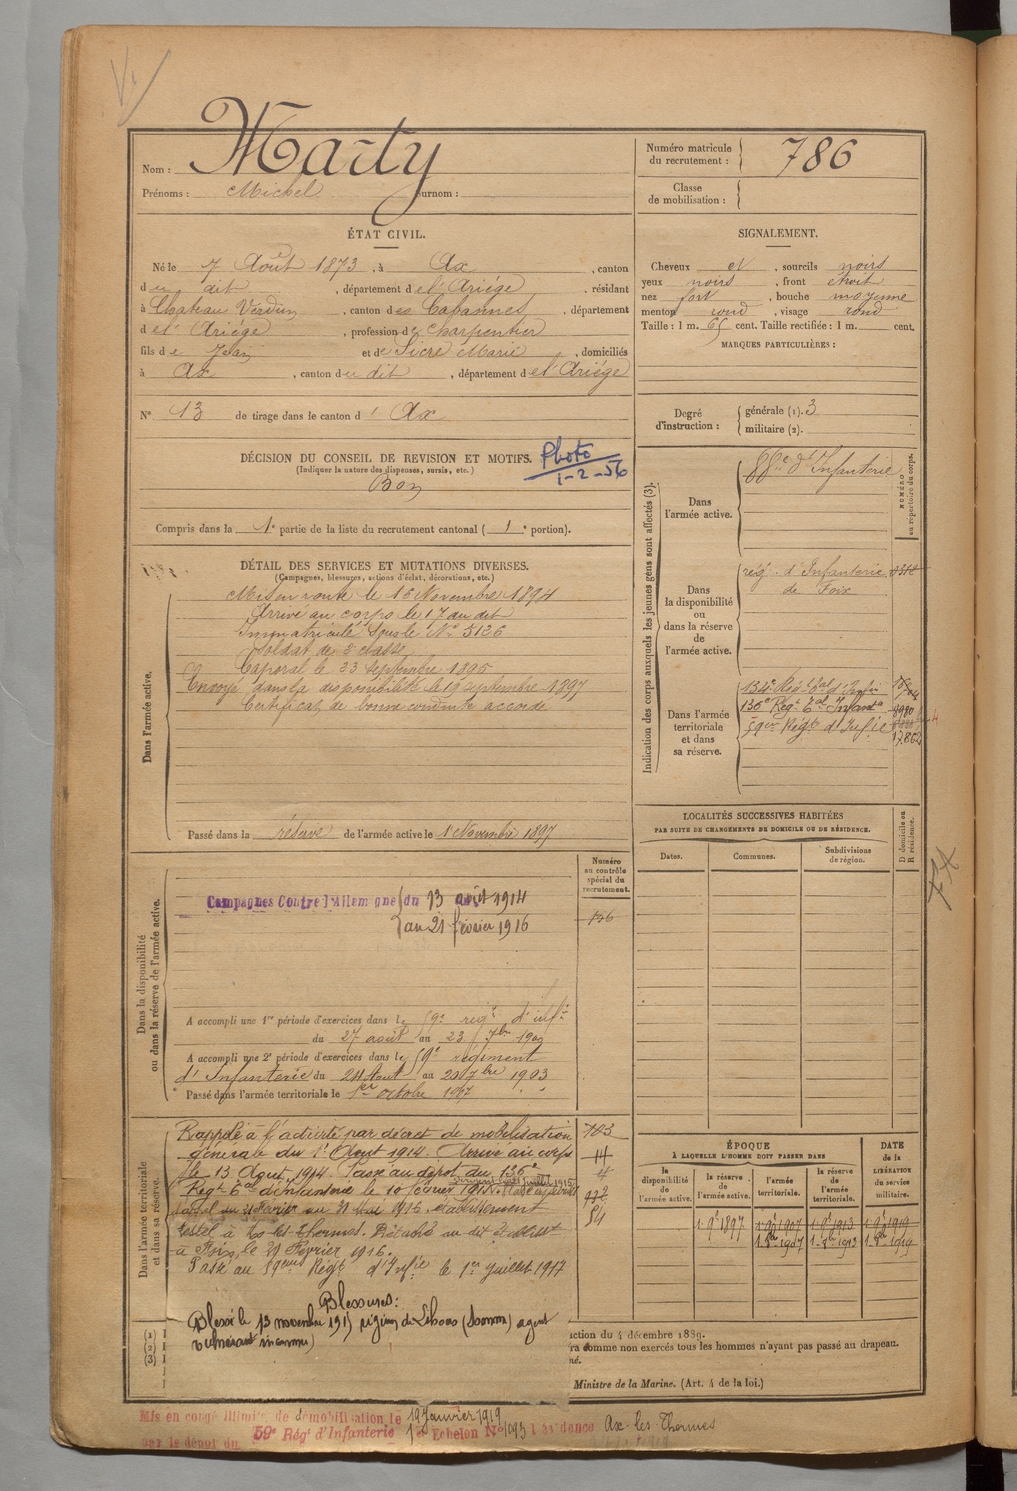 Nom : Marty
Prénoms : Michel surnom :
Numéro matricule
du recrutement : 786
Classe
de mobilisation :
ÉTAT CIVIL.
Né le 7 Août 1873, à Ax, canton
du dit, département de l'Ariége, résidant
à Chateau Verdun, canton des Cabannes, département
de l'Ariége, profession de charpentier
fils de Jean et de Sicre Marie, domiciliés
à Ax, canton du dit, département de l'Ariége
N° 13 de tirage dans le canton d' Ax
SIGNALEMENT.
Cheveux et, sourcils noirs
yeux noirs, front étroit
nez fort, bouche moyenne
menton rond, visage rond
Taille : 1 m. 65 cent. Taille rectifiée : 1 m. cent.
MARQUES PARTICULIÈRES :
Degré
d'instruction :
générale (1). 3
militaire (2).
DÉCISION DU CONSEIL DE REVISION ET MOTIFS.
(Indiquer la nature des dispenses, sursis, etc.)
Photo
1-2-56
Bon
Compris dans la 1e partie de la liste du recrutement cantonal ( 1e portion).
DÉTAIL DES SERVICES ET MUTATIONS DIVERSES.
(Campagnes, blessures, actions d'éclat, décorations, etc.)
Dans l'armée active.
Mis en route le 16 Novembre 1894
Arrivé au corps le 17 au dit
Immatriculé sous le N° 5126
Soldat de 2e classe
Caporal le 23 septembre 1895
Envoyé dans la disponibilité le 19 septembre 1897
Certificat de bonne conduite accordé
Passé dans la réserve de l'armée active le 1 Novembre 1897
Indication des corps auxquels les jeunes gens sont affectés (3).
NUMÉRO
au répertoire du corps.
Dans
l'armée active.
88e d'Infanterie
Dans
la disponibilité
ou
dans la réserve
de
l'armée active.
rég. d'Infanterie
de Foix
Dans l'armée
territoriale
et dans
sa réserve.
134e Régt tal d'Infie
136e Régt Tal Infant
59e Régt d'Infie
17862
LOCALITÉS SUCCESSIVES HABITÉES
PAR SUITE DE CHANGEMENTS DE DOMICILE OU DE RÉSIDENCE.
D domicile ou
R résidence.
Dates.
Communes.
Subdivisions
de région.
Dans la disponibilité
ou dans la réserve de l'armée active.
Numéro
au contrôle
spécial du
recrutement.
Campagnes Contre l'Allemagne du 13 août 1914
au 21 février 1916
A accompli une 1re période d'exercices dans le 59e régt d'infie
du 27 août au 23 7bre 1900
A accompli une 2e période d'exercices dans le 59e régiment
d'Infanterie du 24 Aout au 20 7bre 1903
Passé dans l'armée territoriale le 1er octobre 1907
Dans l'armée territoriale
et dans sa réserve.
Rappelé à l'activité par décret de mobilisation
générale du 1e Août 1914. Arrivé au corps
le 13 Août 1914. Passé au dépôt du 136e
Régt Tal d'infanterie le 10 février 1915.
au 31 Mai 1916. établissement
à Ax les Thermes. Détaché au dit
à Foix, le 21 Février 1916.
Passé au 59eme Régt d'Infie le 1er juillet 1917
Blessures :
Blessé le 13 novembre 191 région de Lihons (Somme) agent
vulnérant inconnu)
103
ÉPOQUE
À LAQUELLE L'HOMME DOIT PASSER DANS
la
disponibilité
de
l'armée active.
la réserve
de
l'armée active.
l'armée
territoriale.
la réserve
de
l'armée
territoriale.
DATE
de la
LIBÉRATION
du service
militaire.
1 9e 1897
1 9e 1907
1 9e 1913
1 9e 1919
1 8e 1907
1 8e 1913
1 8e 1919
(1)
(2)
(3)
ction du 4 décembre 1889.
ra comme non exercés tous les hommes n'ayant pas passé au drapeau.
Ministre de la Marine. (Art. 4 de la loi.)
Mis en congé illimité de démobilisation le 19 Janvier 1919
par le dépôt du 59e Régt d'Infanterie 1er Echelon N° 1093 résidence Ax-les-Thermes